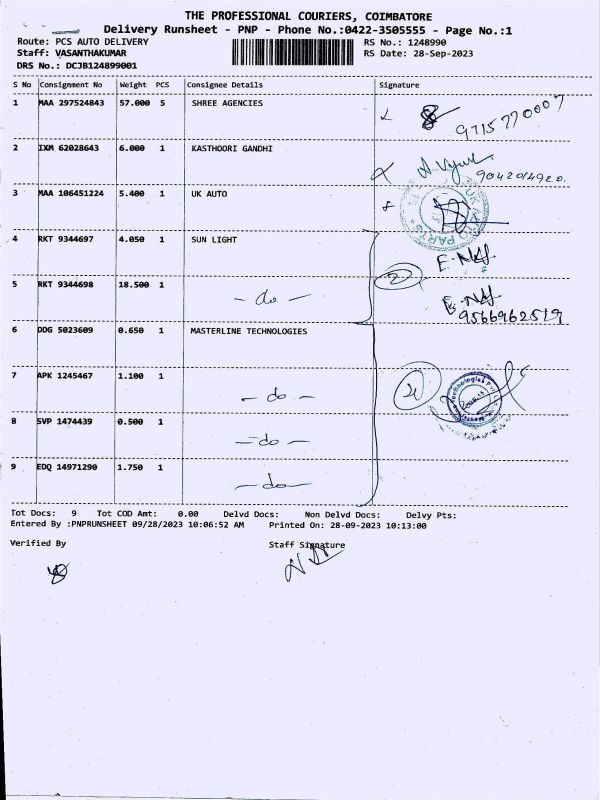 THE PROFESSIONAL COURIERS, COIMBATORE
Delivery Runsheet - PNP - Phone No.:0422-3505555 - Page No.:1
Route: PCS AUTO DELIVERY RS No.: 1248990
Staff: VASANTHAKUMAR RS Date: 28-Sep-2023
DRS No.: DCJB124899001
S No Consignment No Weight PCS Consignee Details Signature
1 MAA 297524843 57.000 5 SHREE AGENCIES
9715770007
2 IXM 62028643 6.000 1 KASTHOORI GANDHI
9042014920.
3 MAA 106451224 5.400 1 UK AUTO
UK AUTO PARTS
4 RKT 9344697 4.050 1 SUN LIGHT
5 RKT 9344698 18.500 1 - do - 2
9566962519
6 DDG 5023609 0.650 1 MASTERLINE TECHNOLOGIES
7 APK 1245467 1.100 1 - do -
8 SVP 1474439 0.500 1 - do -
9 EDQ 14971290 1.750 1 - do -
Tot Docs: 9 Tot COD Amt: 0.00 Delvd Docs: Non Delvd Docs: Delvy Pts:
Entered By :PNPRUNSHEET 09/28/2023 10:06:52 AM Printed On: 28-09-2023 10:13:00
Verified By Staff Signature